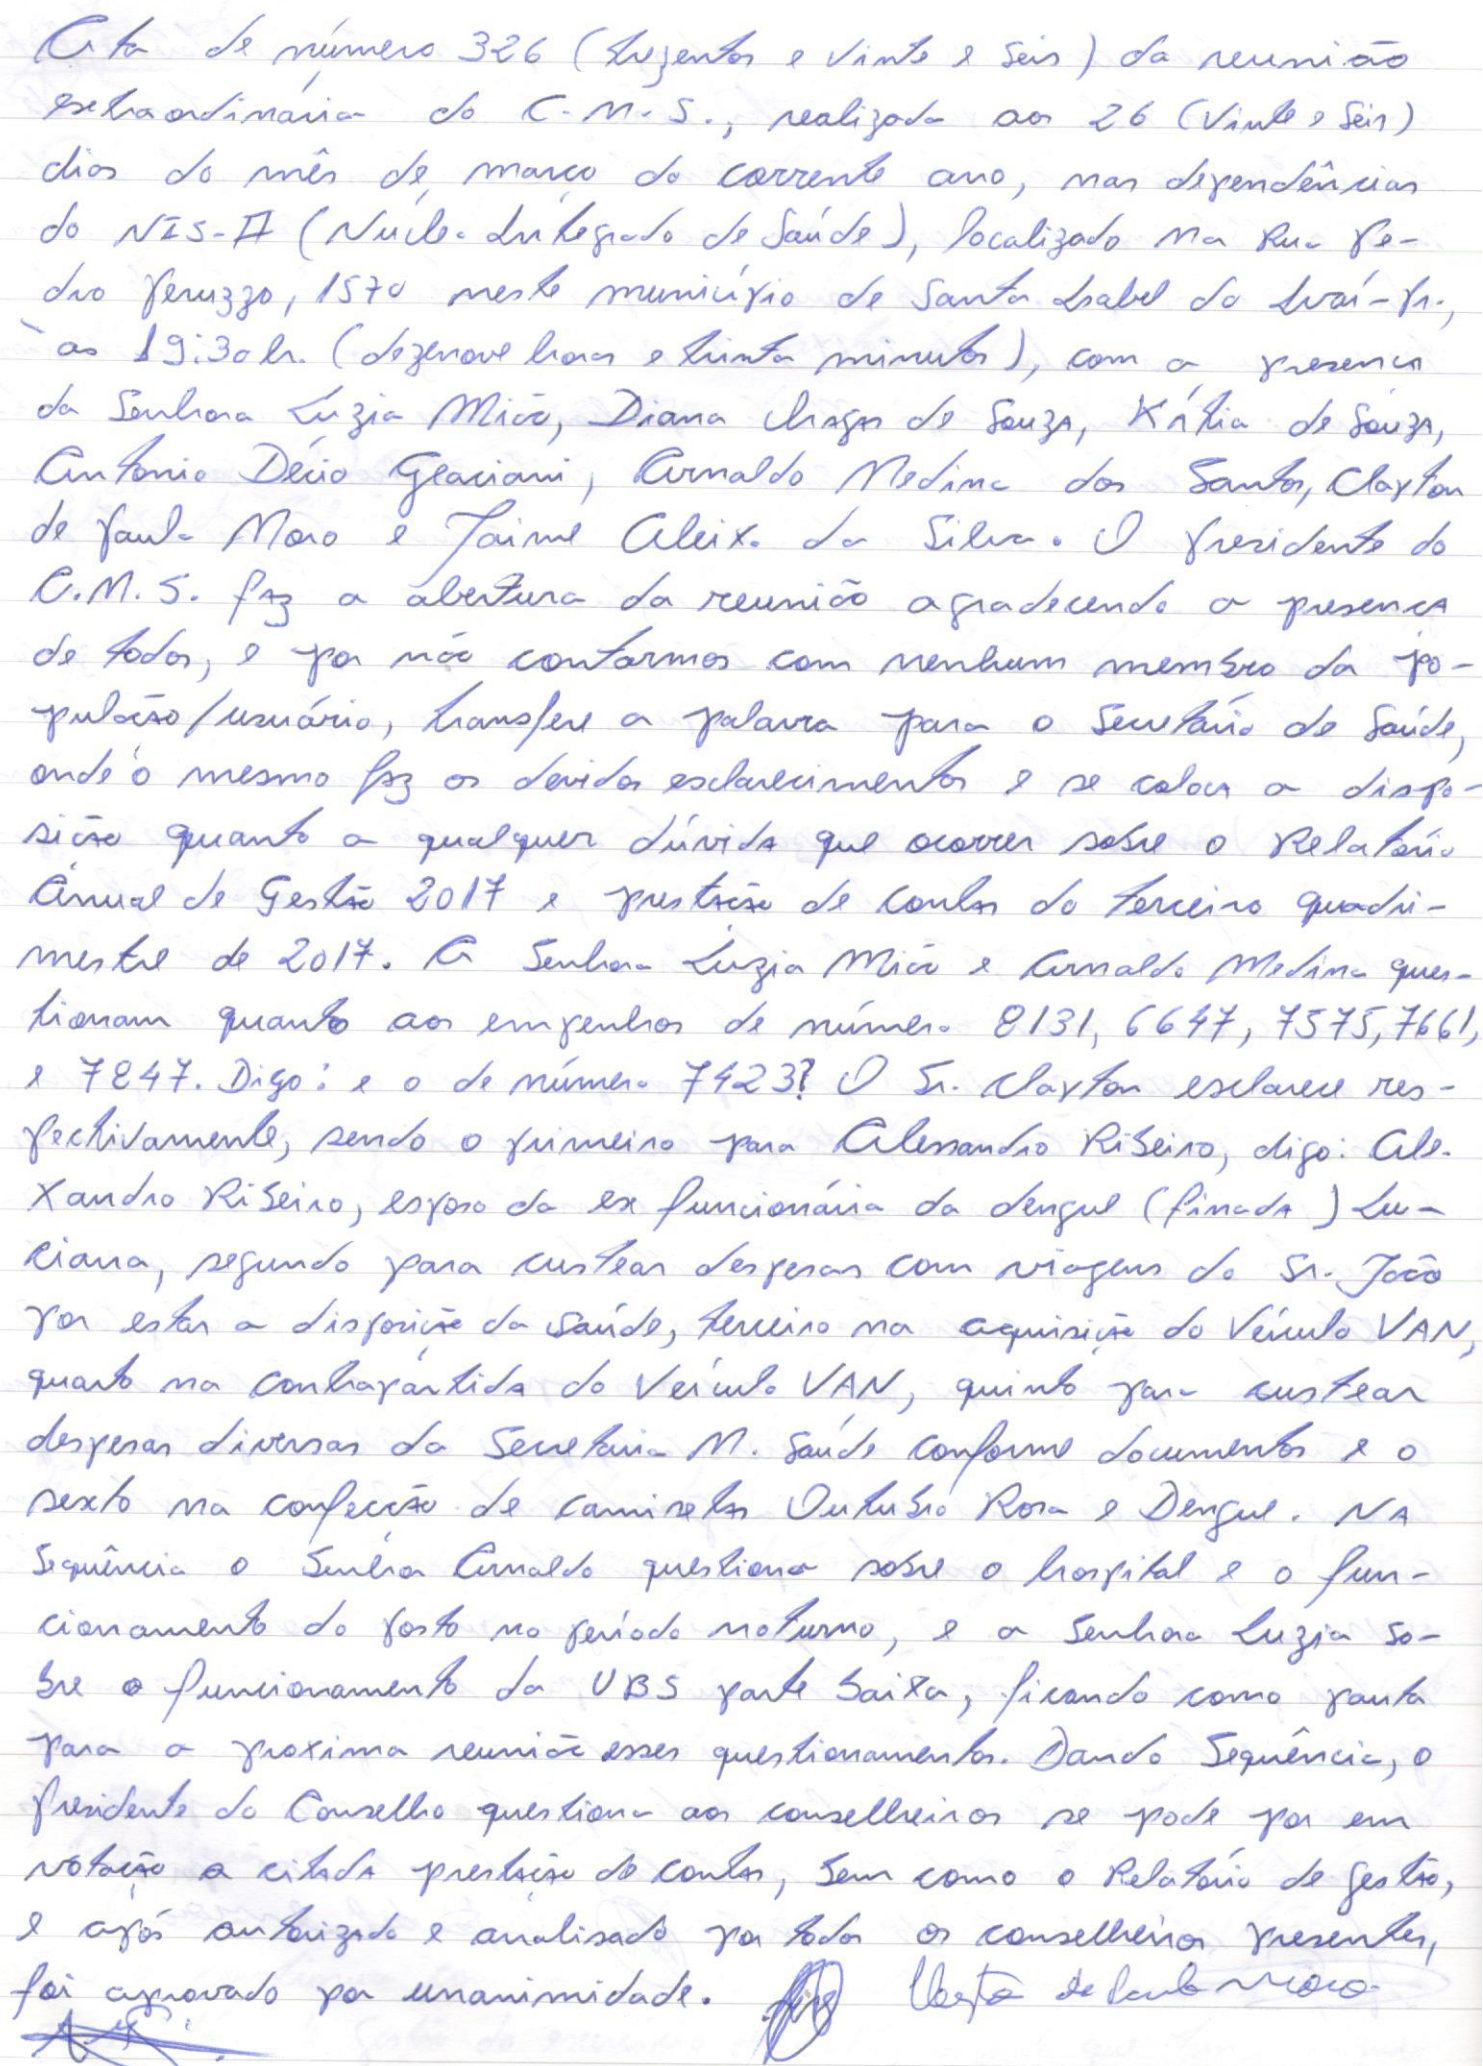 Ata de número 326 (trezentos e vinte e seis) da reunião
extraordinária do C.M.S., realizada aos 26 (vinte e seis)
dias do mês de março do corrente ano, nas dependências
do NIS-II (Núcleo Integrado de Saúde), localizado na Rua Pe-
dro Peruzzo, 1570 neste município de Santa Isabel do Ivaí-Pr.,
às 19:30hr. (dezenove horas e trinta minutos), com a presença
da Senhora Luzia Mião, Diana Chagas de Souza, Kátia de Souza,
Antonio Décio Geaciani, Arnaldo Medina dos Santos, Clayton
de Paula Moro e Jaime Aleixo da Silva. O Presidente do
C.M.S. faz a abertura da reunião agradecendo a presença
de todos, e por não contarmos com nenhum membro da po-
pulação/usuário, transfere a palavra para o Secretário de Saúde,
onde o mesmo faz os devidos esclarecimentos e se coloca a dispo-
sição quanto a qualquer dúvida que ocorrer sobre o Relatório
Anual de Gestão 2017 e prestação de contas do terceiro quadri-
mestre de 2017. A Senhora Luzia Mião e Arnaldo Medina ques-
tionam quanto aos empenhos de número 8131, 6647, 7575, 7661,
e 7847. Digo: e o de número 7423? O Sr. Clayton esclarece res-
pectivamente, sendo o primeiro para Alessandro Ribeiro, digo: Ale-
xandro Ribeiro, esposo da ex funcionária da dengue (finada) Lu-
ciana, segundo para custear despesas com viagens do Sr. João
por estar a disposição da saúde, terceiro na aquisição do Veículo VAN,
quarto na contrapártida do Veículo VAN, quinto para custear
despesas diversas da Secretaria M. Saúde conforme documentos e o
sexto na confecção de camisetas Outubro Rosa e Dengue. Na
Sequência o Senhor Arnaldo questiona sobre o hospital e o fun-
cionamento do posto no período noturno, e a Senhora Luzia so-
bre o funcionamento da UBS parte baixa, ficando como pauta
para a proxima reunião esses questionamentos. Dando Sequência, o
Presidente do Conselho questiona aos conselheiros se pode por em
votação a citada prestação de contas, bem como o Relatório de gestão,
e após autorizado e analisado por todos os conselheiros presentes,
foi aprovado por unanimidade. Clayton de Paula Moro